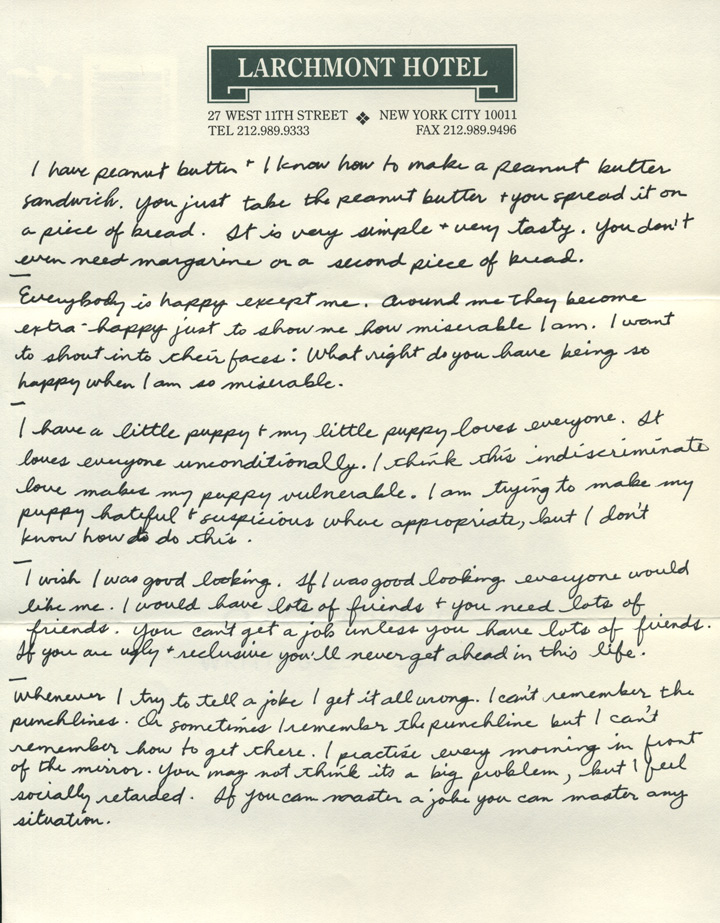 LARCHMONT HOTEL
27 WEST 11TH STREET ❖ NEW YORK CITY 10011
TEL 212.989.9333 FAX 212.989.9496
I have peanut butter + I know how to make a peanut butter
sandwich. You just take the peanut butter + you spread it on
a piece of bread. It is very simple + very tasty. You don't
even need margarine or a second piece of bread.
—
Everybody is happy except me. Around me they become
extra-happy just to show me how miserable I am. I want
to shout into their faces: What right do you have being so
happy when I am so miserable.
—
I have a little puppy + my little puppy loves everyone. It
loves everyone unconditionally. I think this indiscriminate
love makes my puppy vulnerable. I am trying to make my
puppy hateful + suspicious where appropriate, but I don't
know how to do this.
—
I wish I was good looking. If I was good looking everyone would
like me. I would have lots of friends + you need lots of
friends. You can't get a job unless you have lots of friends.
If you are ugly + reclusive you'll never get ahead in this life.
—
Whenever I try to tell a joke I get it all wrong. I can't remember the
punchlines. Or sometimes I remember the punchline but I can't
remember how to get there. I practise every morning in front
of the mirror. You may not think its a big problem, but I feel
socially retarded. If you can master a joke you can master any
situation.